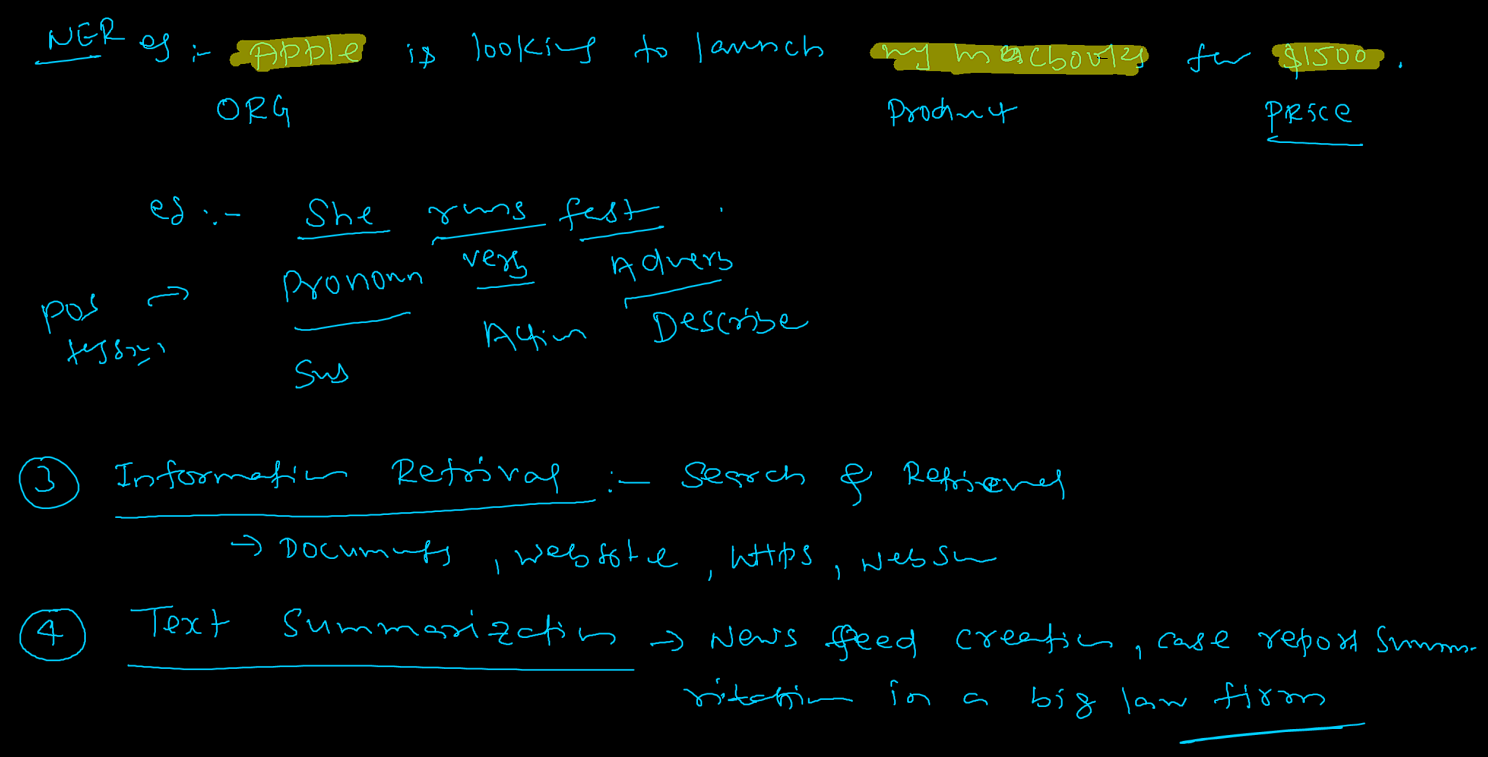 NER eg :- Apple is looking to launch my macbook for $1500 .
ORG Product PRice
eg :- She runs fast .
Pronoun verb Adverb
POS →
Sub Action Describe
③ Information Retrival :- Search & Retrieval
→ Documents , website , https ,
④ Text Summarization → News feed creation , case report Summa-
rization in a big law firm